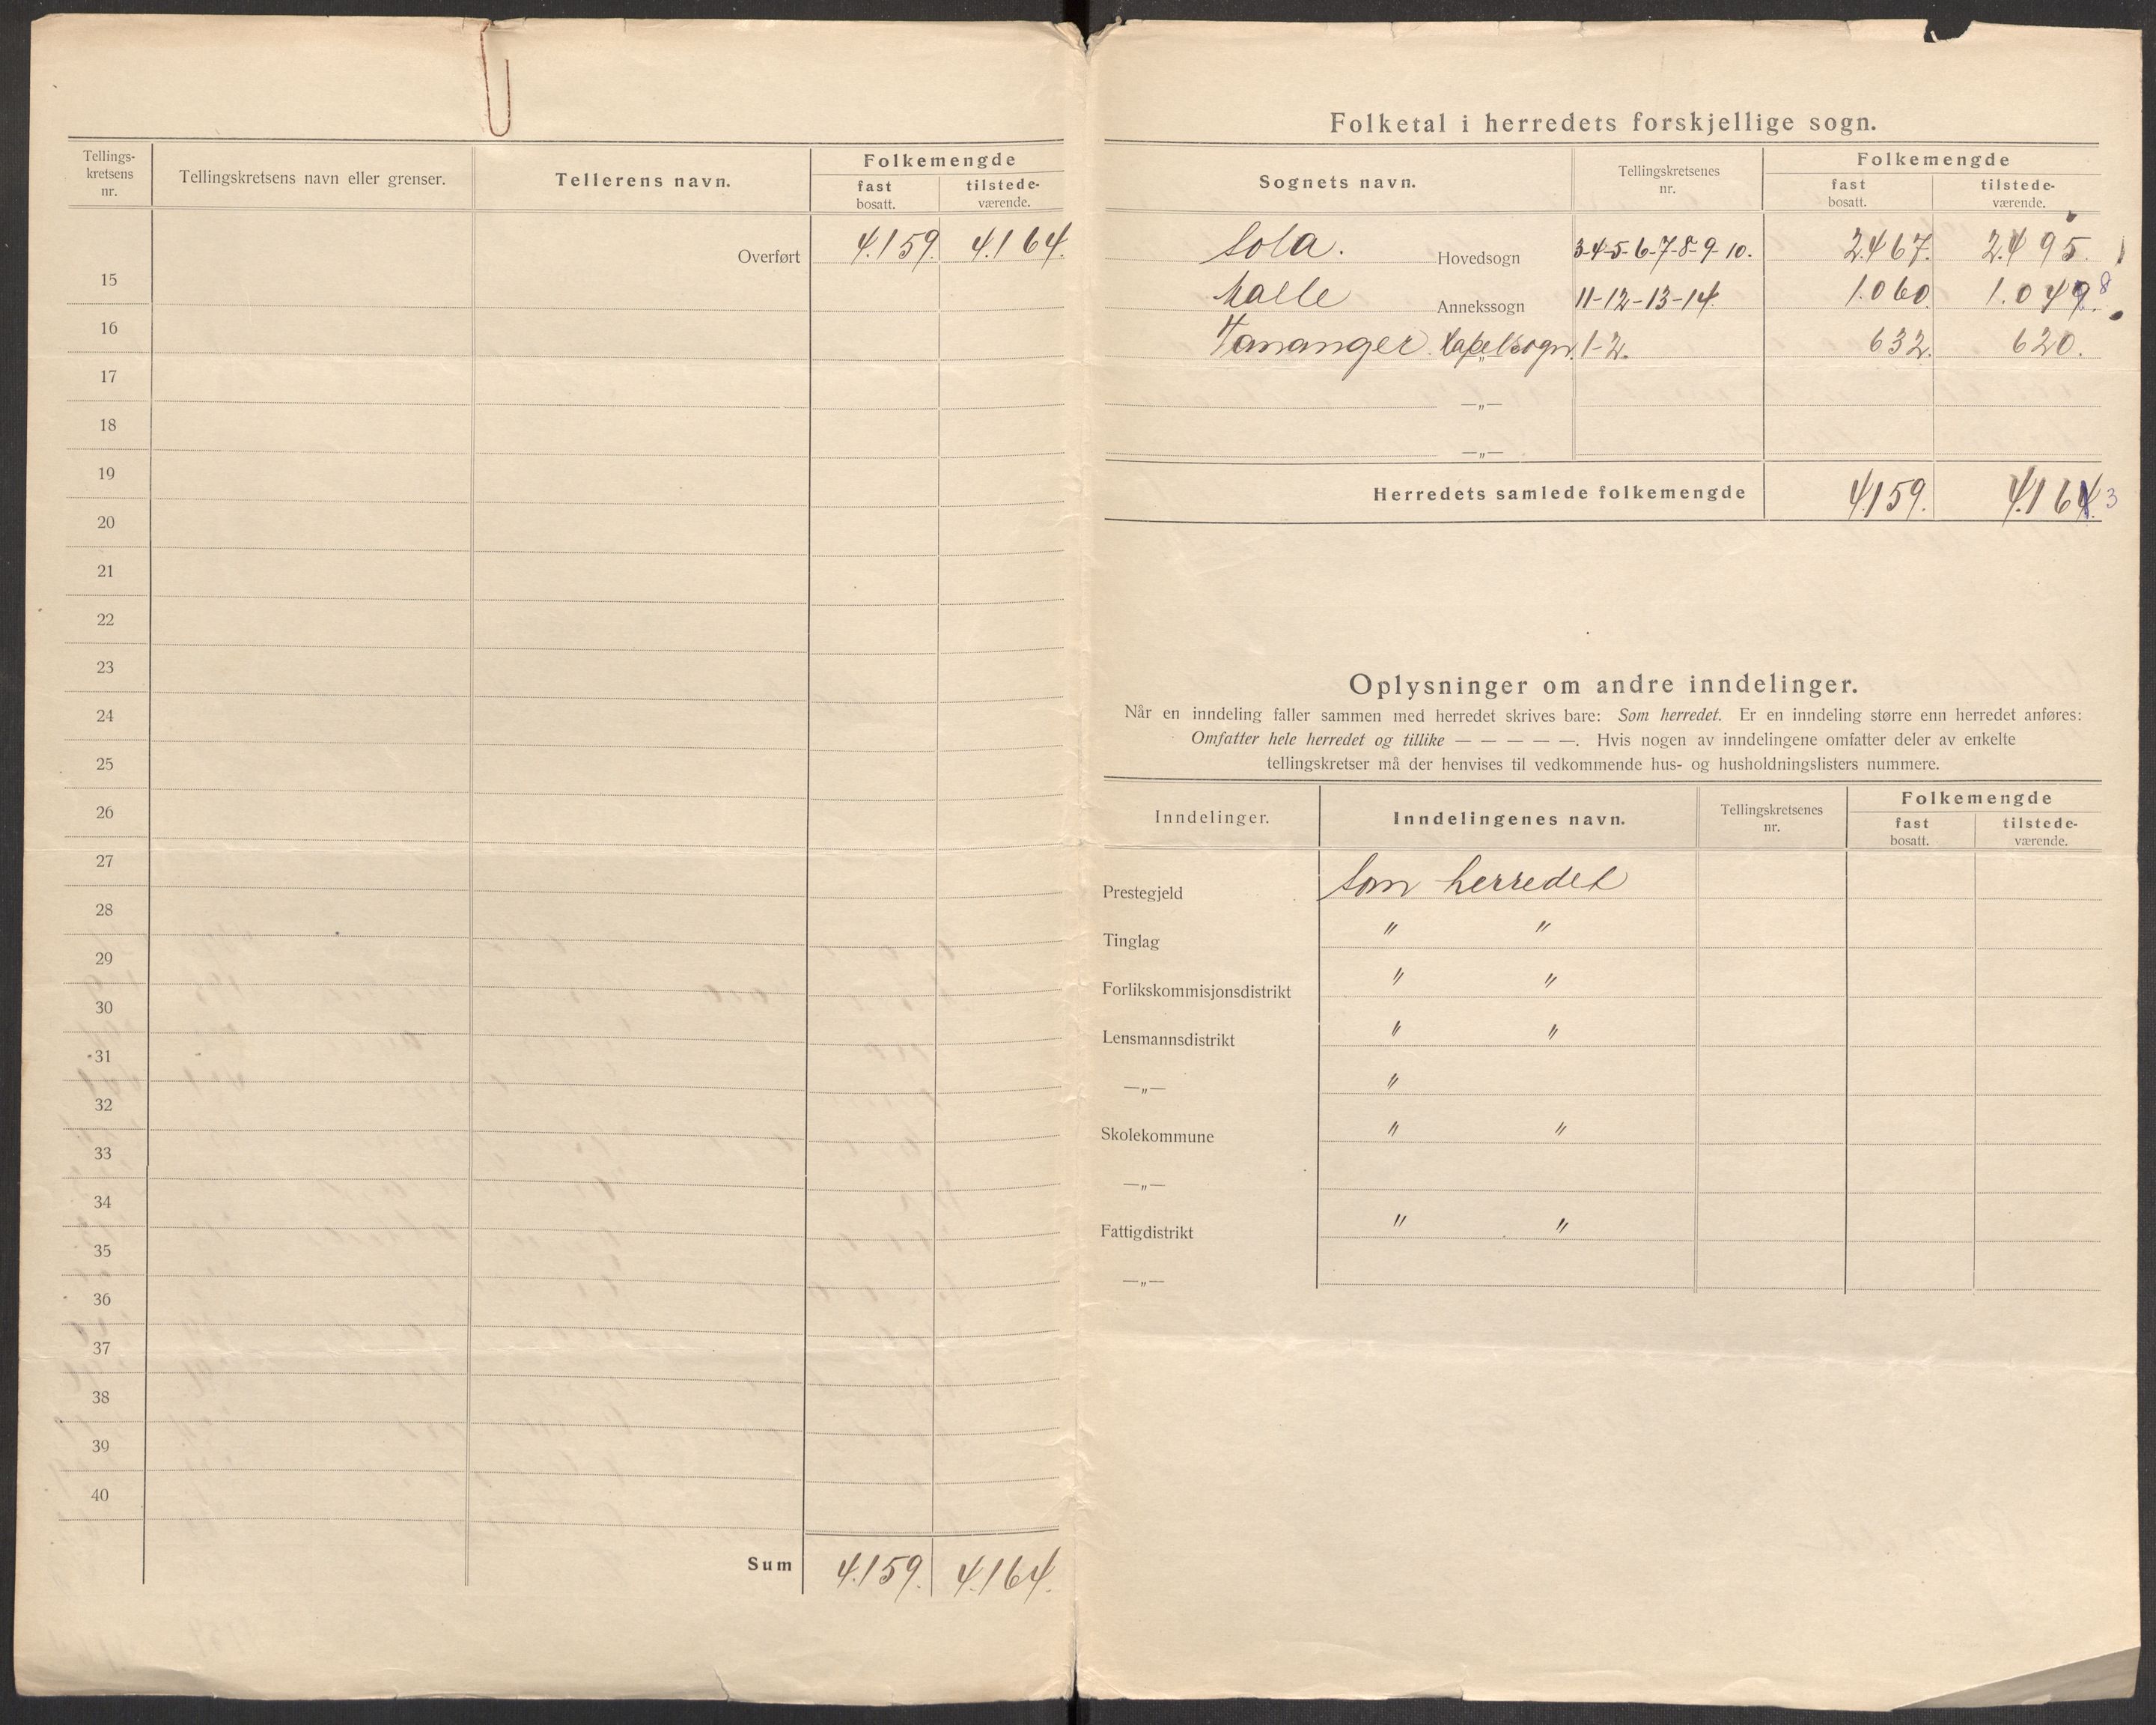 Tellings-
kretsens
nr.
Tellingskretsens navn eller grenser.
Tellerens navn.
Folkemengde
fast
bosatt.
tilstede-
værende.
Overført 4.159. 4.164.
15
16
17
18
19
20
21
22
23
24
25
26
27
28
29
30
31
32
33
34
35
36
37
38
39
40
Sum 4.159. 4.164.
Folketal i herredets forskjellige sogn.
Sognets navn.
Tellingskretsenes
nr.
Folkemengde
fast
bosatt.
tilstede-
værende.
Sola. Hovedsogn 3-4-5-6-7-8-9-10. 2.467. 2.495.
Malle Annekssogn 11-12-13-14. 1.060 1.049. 8
Tananger Kapelsogn. 1-2. 632. 620.
—„—
—„—
Herredets samlede folkemengde 4.159. 4.164. 3
Oplysninger om andre inndelinger.
Når en inndeling faller sammen med herredet skrives bare: Som herredet. Er en inndeling større enn herredet anføres:
Omfatter hele herredet og tillike — — — — —. Hvis nogen av inndelingene omfatter deler av enkelte
tellingskretser må der henvises til vedkommende hus- og husholdningslisters nummere.
Inndelinger.
Inndelingenes navn.
Tellingskretsenes
nr.
Folkemengde
fast
bosatt.
tilstede-
værende.
Prestegjeld Som herredet
Tinglag " "
Forlikskommisjonsdistrikt " "
Lensmannsdistrikt " "
—„— "
Skolekommune " "
—„—
Fattigdistrikt " "
—„—